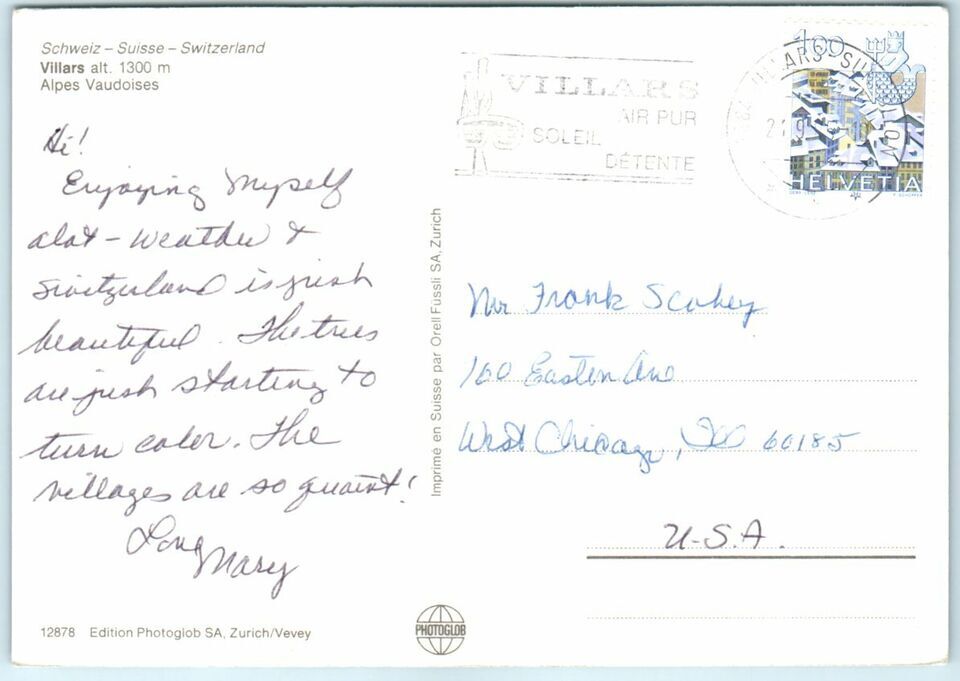 Schweiz – Suisse – Switzerland
Villars alt. 1300 m
Alpes Vaudoises
VILLARS
AIR PUR
SOLEIL
DÉTENTE
1.00
HELVETIA
Hi!
Enjoying Myself
alot – weather &
Switzerland is just
beautiful. The trees
are just starting to
turn color. The
villages are so quaint!
Love
Mary
Imprimé en Suisse par Orell Füssli SA, Zurich
Mr Frank
160 Eastern Ave
West Chicago, Ill 60185
U.S.A.
12878 Edition Photoglob SA, Zurich/Vevey
PHOTOGLOB